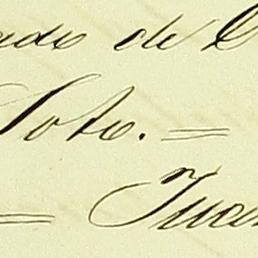 ado de C
Soto. =
= Juan